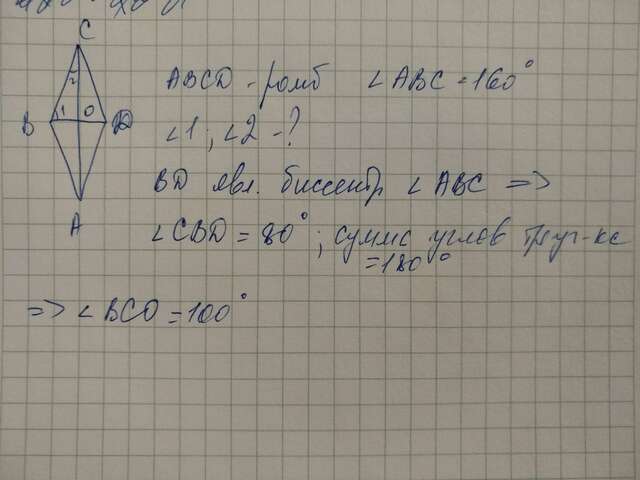 C
2
ABCD - ромб ∠ABC = 160°
B 1 O D
∠1; ∠2 - ?
BD явл. биссектр ∠ABC =>
A
∠CBD = 80°; сумма углов треуг-ка
=180°
=> ∠BCO = 100°